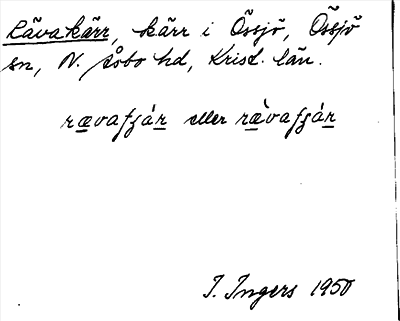 Rävakärr, kärr i Össjö, Össjö
sn, N. Åsbo hd, Krist. län.
rævafʃár eller rævafʃár
I. Ingers 1950